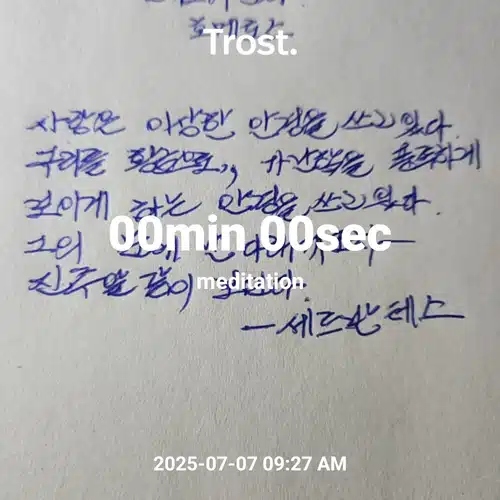 Trost.
사랑은 이상한 안경을 쓰고 있다.
구리를 황금으로, 가난함을 풍족하게
보이게 하는 안경을 쓰고 있다.
그의 눈에
00min 00sec
진주알 같이 보인다.
meditation
—세르반테스
2025-07-07 09:27 AM